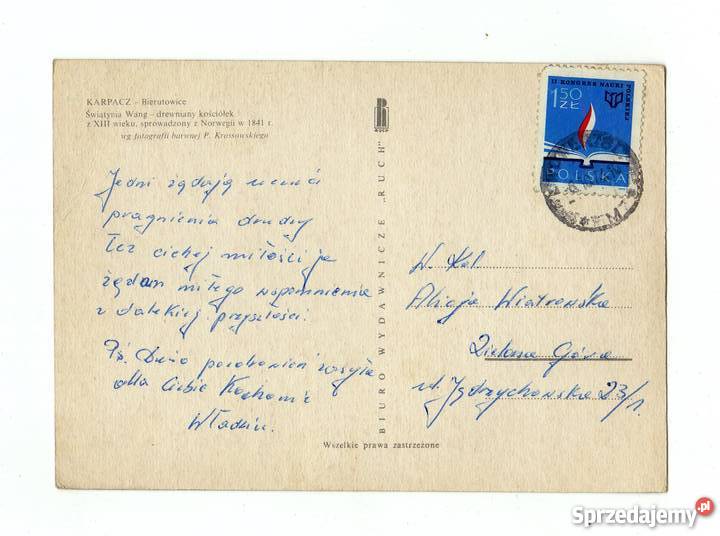 KARPACZ – Bierutowice
Świątynia Wang – drewniany kościółek
z XIII wieku, sprowadzony z Norwegii w 1841 r.
wg fotografii barwnej P. Krassowskiego
Jedni żądają uczuć
pragnienia drudzy
Lez cichej miłości ja
żądam miłego wspomnienia
z dalekiej przyszłości.
Ps. Dużo pozdrowień zasyła
dla Ciebie
BIURO WYDAWNICZE „RUCH"
R
II KONGRES NAUKI POLSKIEJ
1.50 ZŁ
POLSKA
W. Kol.
Alicja Wiatrowska
Zielona Góra
ul. Jędrzychowska 23/1.
Wszelkie prawa zastrzeżone
Sprzedajemy.pl